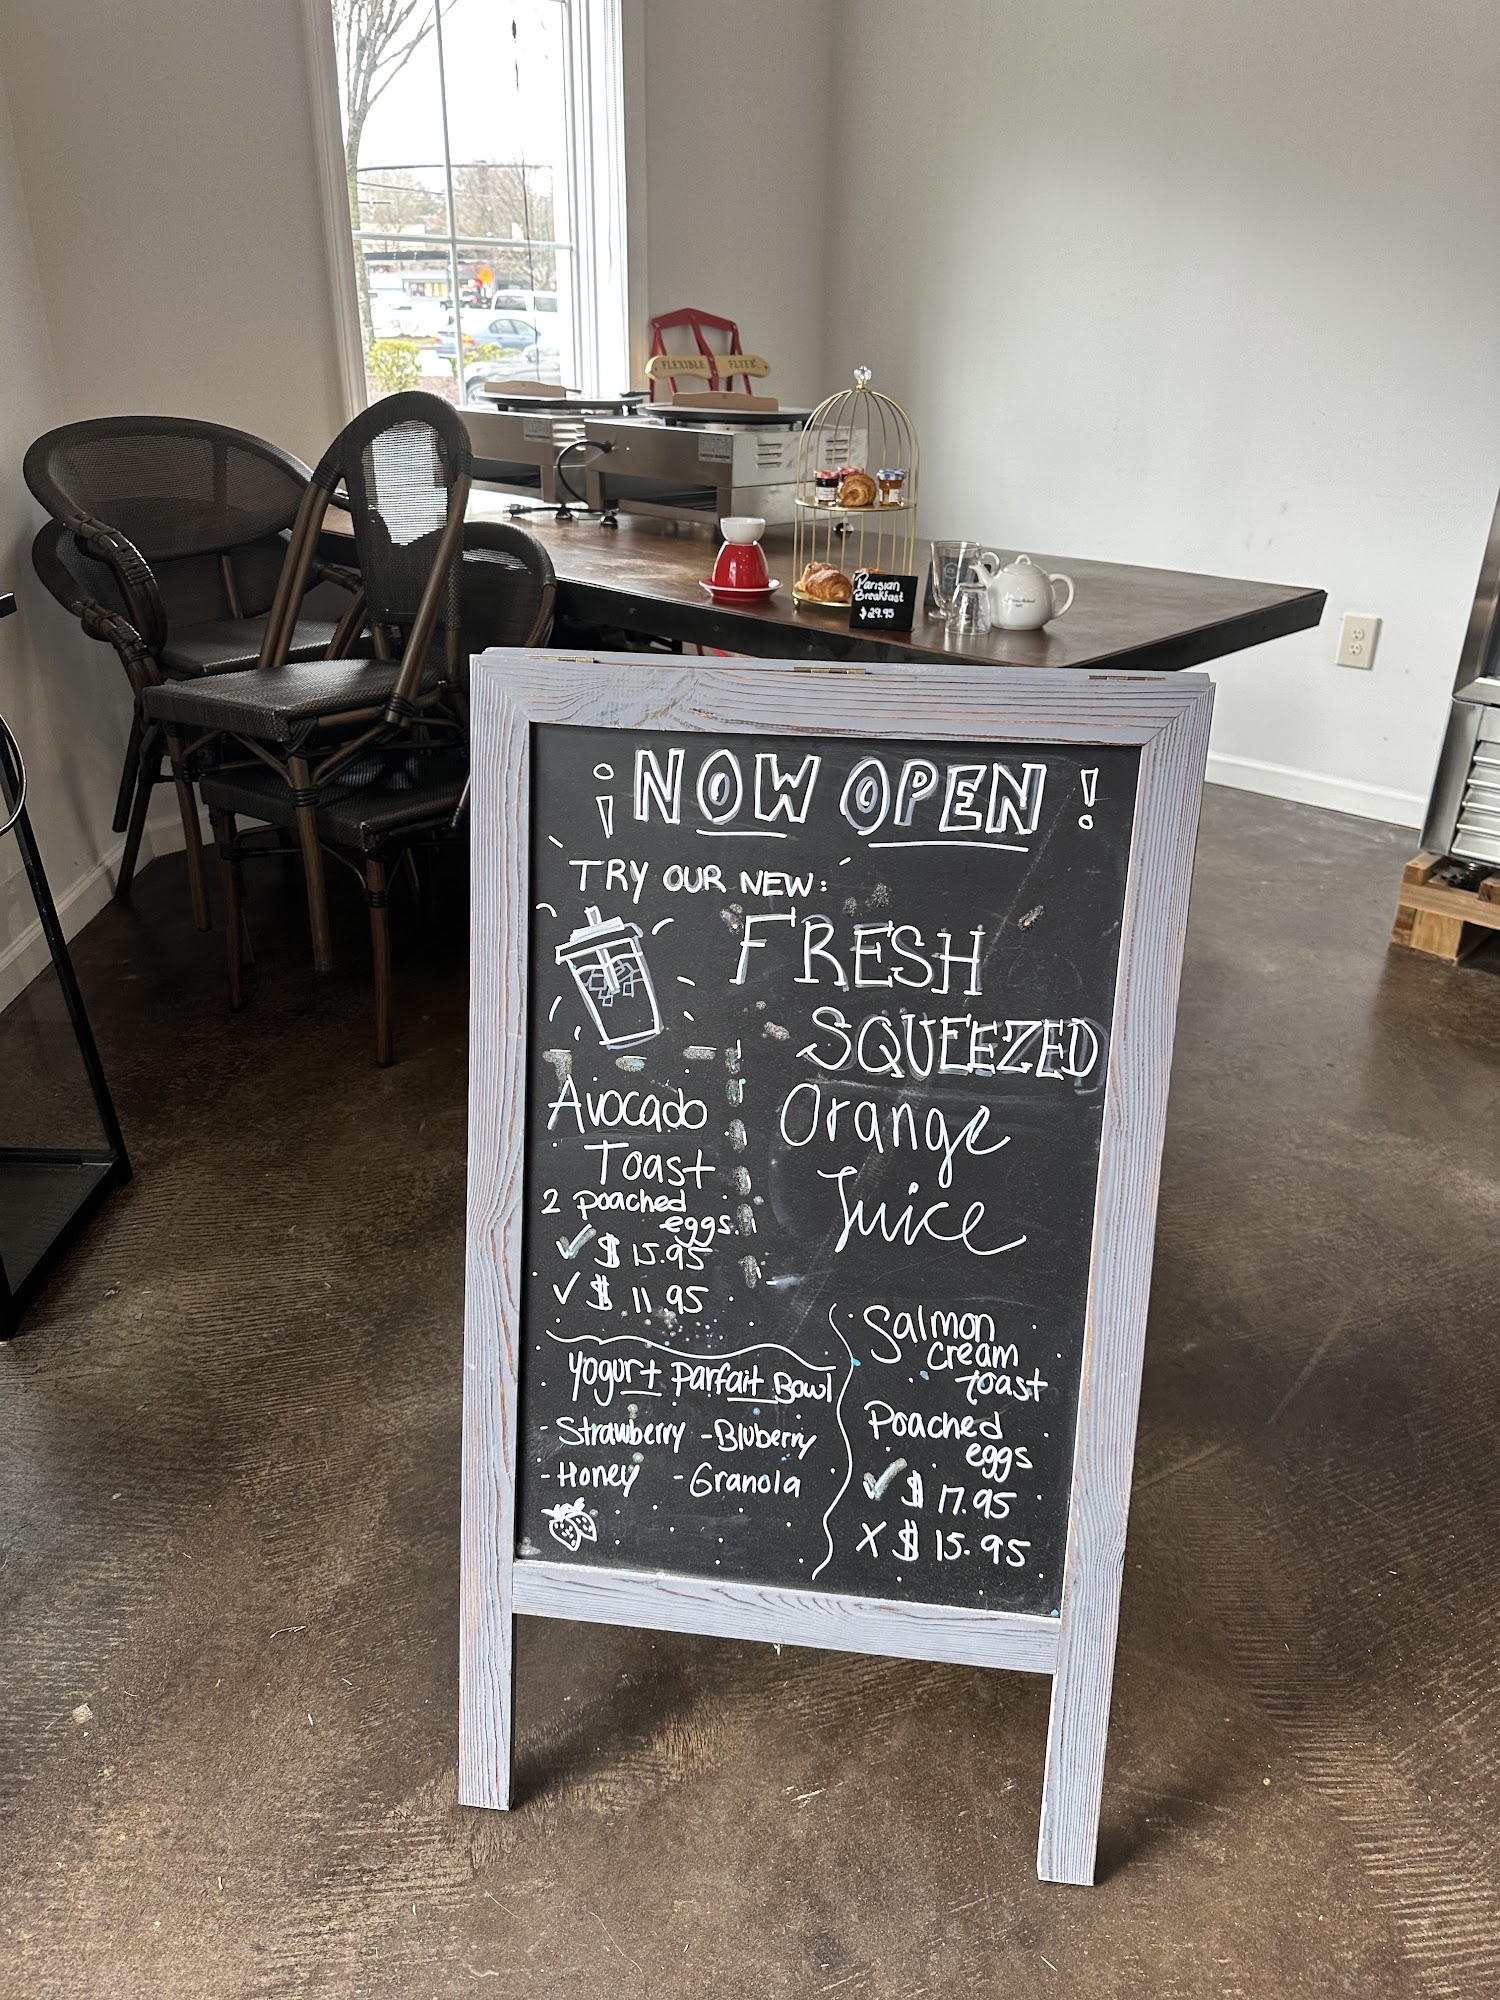 FLEXIBLE FLYER
Parisian
Breakfast
$29.95
¡NOW OPEN!
TRY OUR NEW:
FRESH
SQUEEZED
Orange
Juice
Avocado
Toast
2 poached
eggs.
✓ $15.95
✓ $11.95
Yogurt Parfait Bowl
- Strawberry - Bluberry
- Honey - Granola
Salmon
cream
toast
Poached
eggs
✓ $17.95
X $15.95